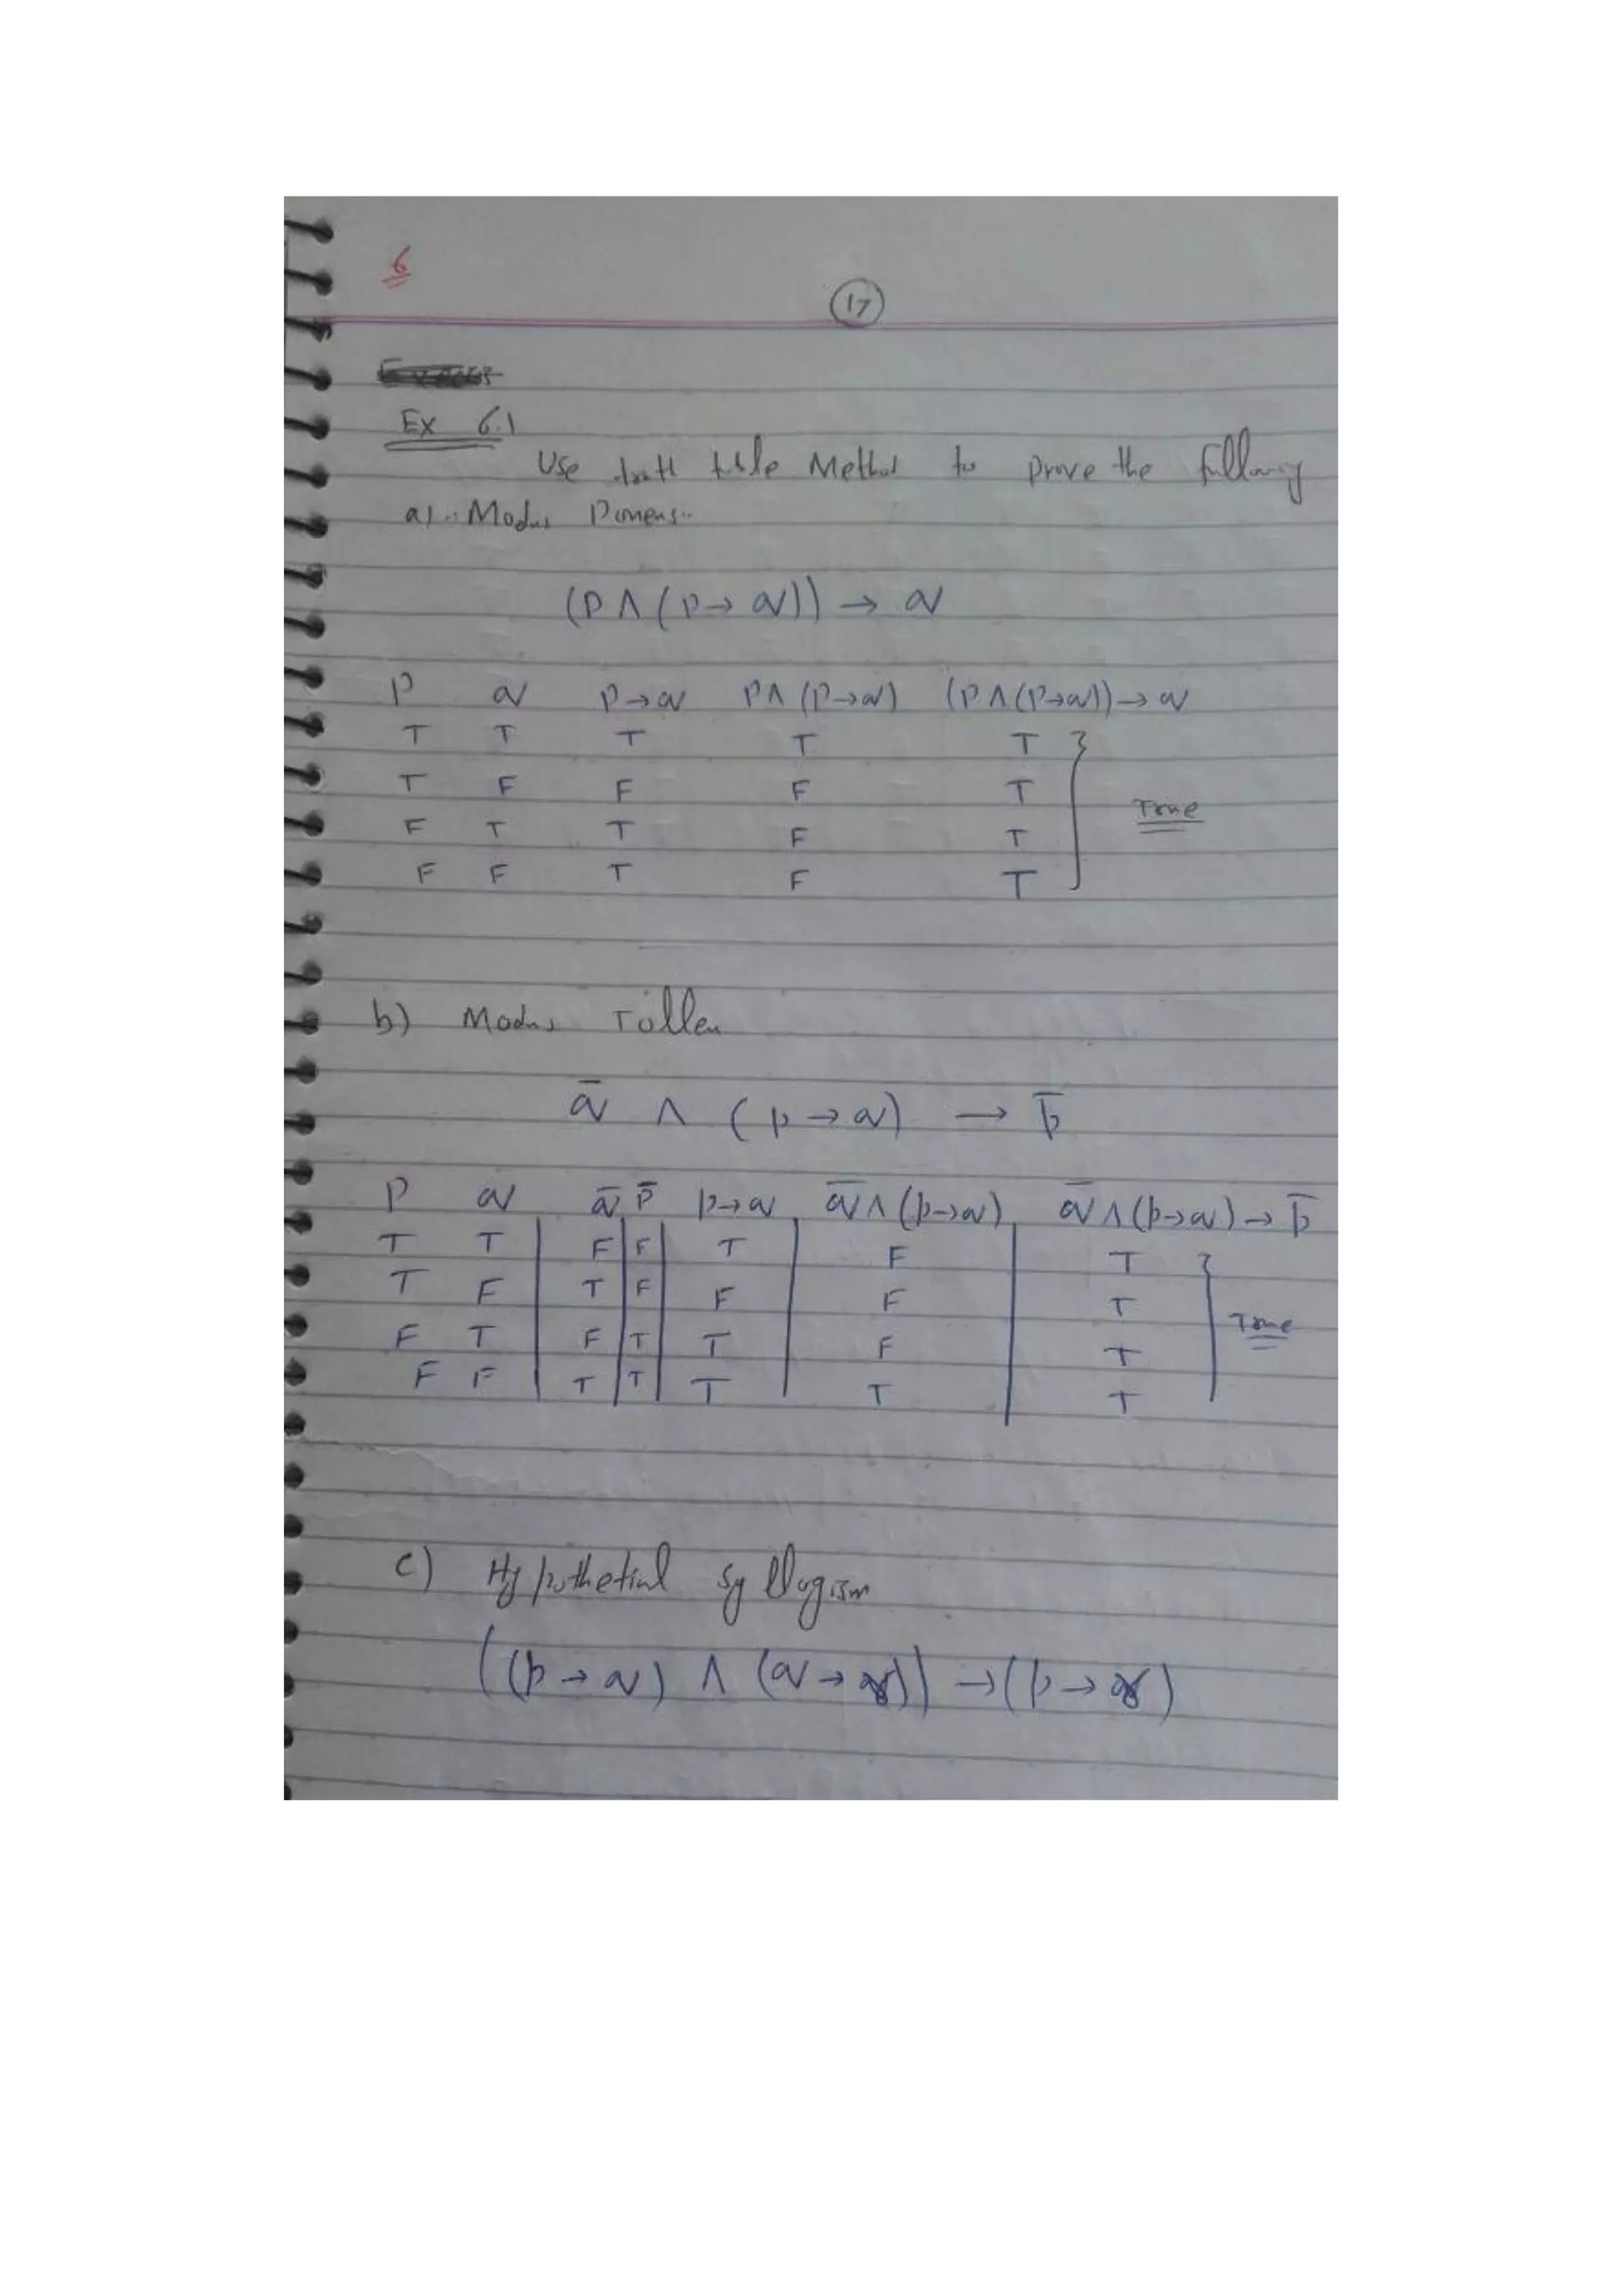 6
17
Ex 6.1
Use truth table Method to prove the following
a) Modus Ponens
(P ∧ (p → q)) → q
P q P→q P∧(P→q) (P∧(P→q))→q
T T T T T
T F F F T
True
F T T F T
F F T F T
b) Modus Tollen
q̅ ∧ (p → q) → p̅
P q q̅ p̅ p→q q̅∧(p→q) q̅∧(p→q)→p̅
T T F F T F T
T F T F F F T
True
F T F T T F T
F F T T T T T
c) Hypothetical Syllogism
((p → q) ∧ (q → r)) → (p → r)